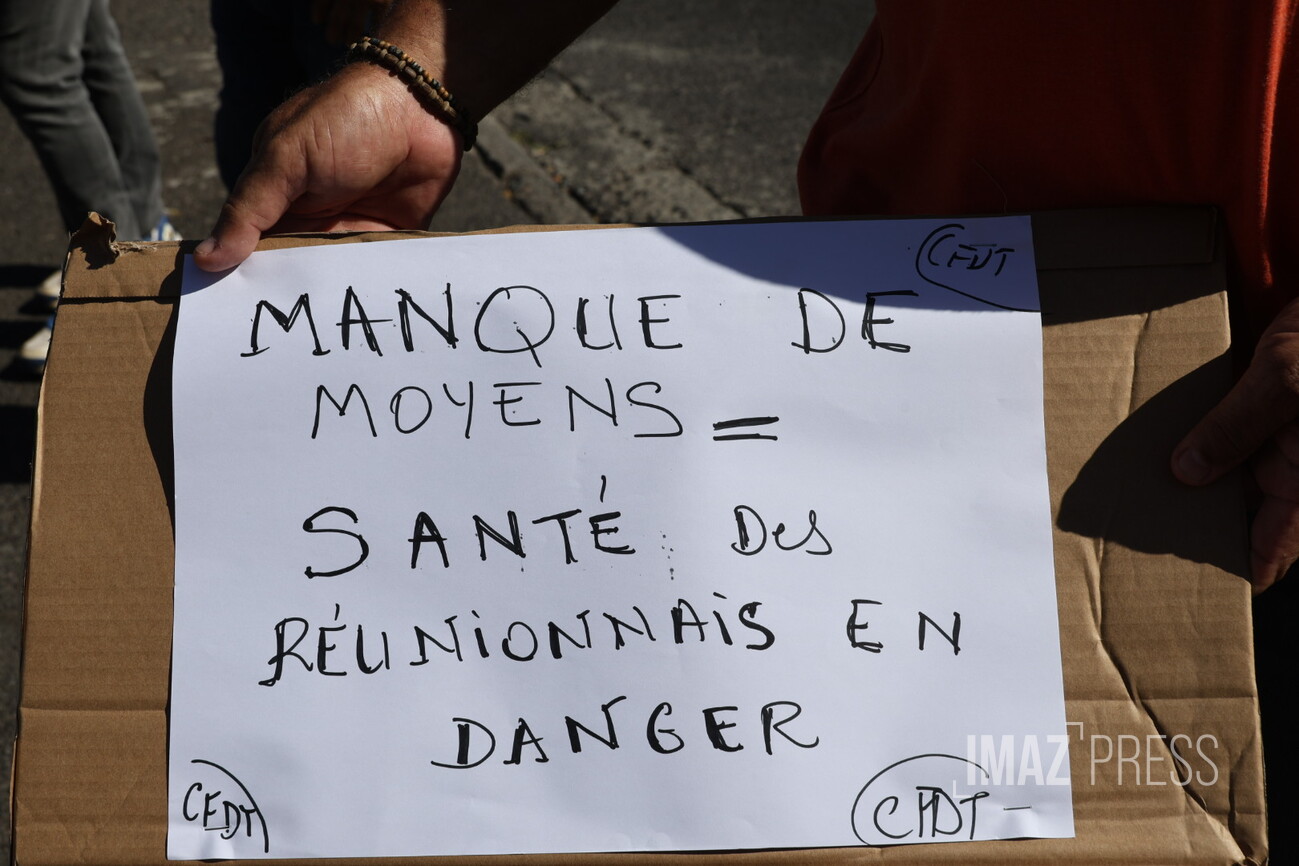 CFDT
MANQUE DE
MOYENS =
SANTÉ Des
RÉUNIONNAIS EN
DANGER
CFDT
CFDT -
IMAZ PRESS